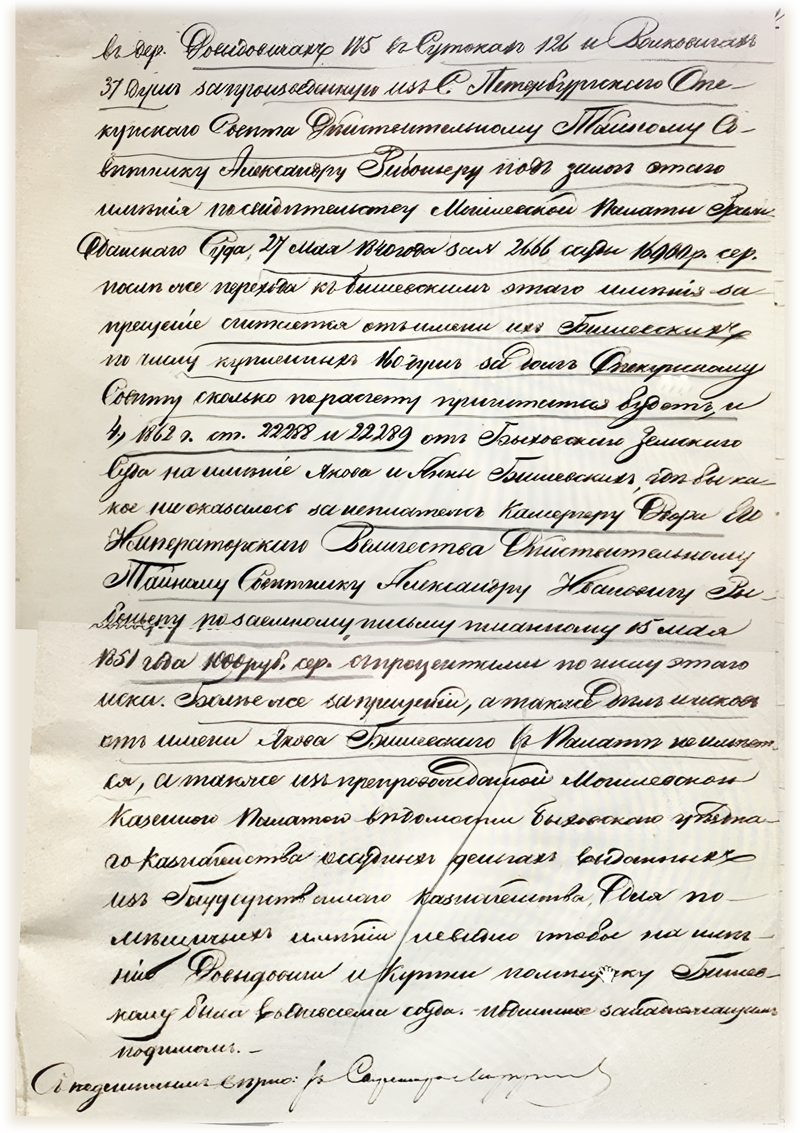 въ дер. Довидовичахъ 175 въ Сутокахъ 126 и Волковичахъ
37 душъ запроизведенную изъ С. Петербургскаго Опе-
кунскаго Совѣта Дѣйствительному Тайному Со-
вѣтнику Александру Рибопьеру подъ залогъ этаго
имѣнія по свидѣтельству Могилевской Палаты Граж-
данскаго Суда, 27 Мая 1840 года за № 2666 ссуды р. сер.
послѣ же перехода къ Бишевскимъ этаго имѣнія за-
прещеніе считается отъ имени ихъ Бишевскихъ
по числу купленныхъ 160 душъ за долгъ Опекунскому
Совѣту сколько по расчету причитатся будетъ, и
4, 1862 г. ст. 22288 и 22289 отъ Быховскаго Земскаго
Суда на имѣніе Якова и Анны Бишевскихъ, гдѣ бы ка-
кое ни оказалось за неплатежъ Камергеру Двора Его
Императорскаго Величества Дѣйствительному
Тайному Совѣтнику Александру Ивановичу Ри-
бопьеру по заемному письму данному 15 Мая
1851 года 1000 руб. сер. съ процентами по иску этаго
иска. Болѣе же запрещеній, а также дѣлъ и исковъ
отъ имени Якова Бишевскаго въ Палатѣ не имѣет-
ся, а также изъ препровожденной Могилевскою
Казенною Палатою вѣдомости Быховскаго уѣздна-
го казначейства о ссудныхъ деньгахъ выданныхъ
изъ Государственнаго Казначейства, для по-
мѣщичьихъ имѣній невидно чтобы на имѣ-
ніе Довидовичи и Кутки помѣщику Бишев-
скому была въ ссуда. подлинное за надлежащимъ
подписомъ. —
Съ подлиннымъ вѣрно: